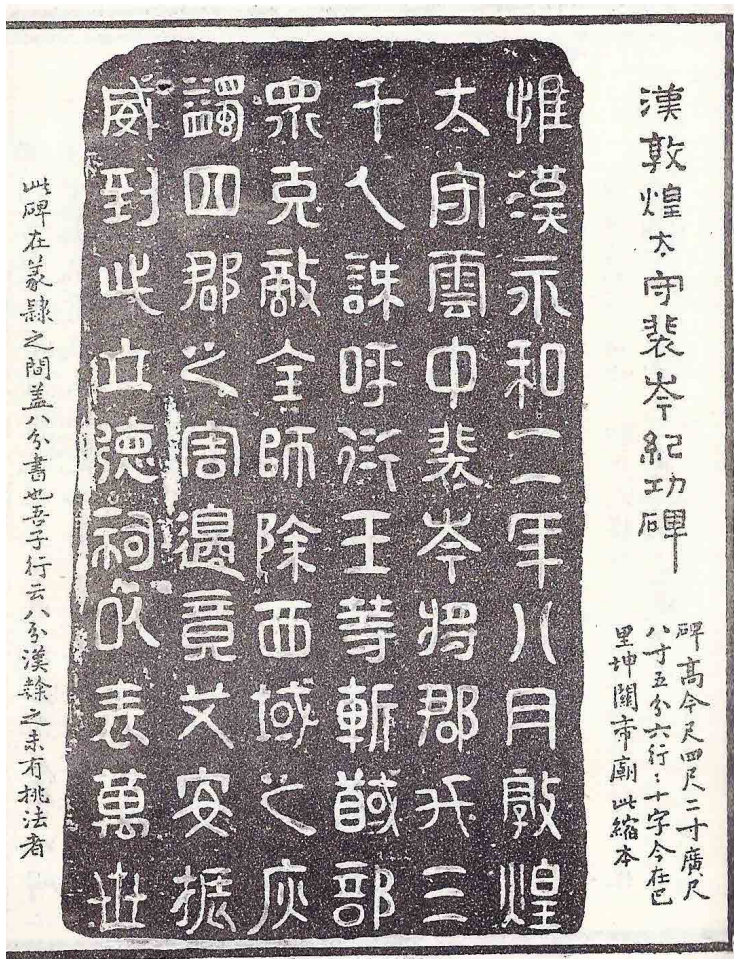 漢敦煌太守裴岑紀功碑
碑高今尺四尺二寸廣尺
八寸五分六行:十字今在巴
里坤關帝廟此縮本
惟漢永和二年八月敦煌
大守雲中裴岑將郡兵三
千人誅呼衍王等斬馘部
眾克敵全師除西域之疢
蠲四郡之害邊竟艾安振
威到此立德祠以表萬世
此碑在篆隸之間蓋八分書也吾子行云八分漢隸之未有挑法者